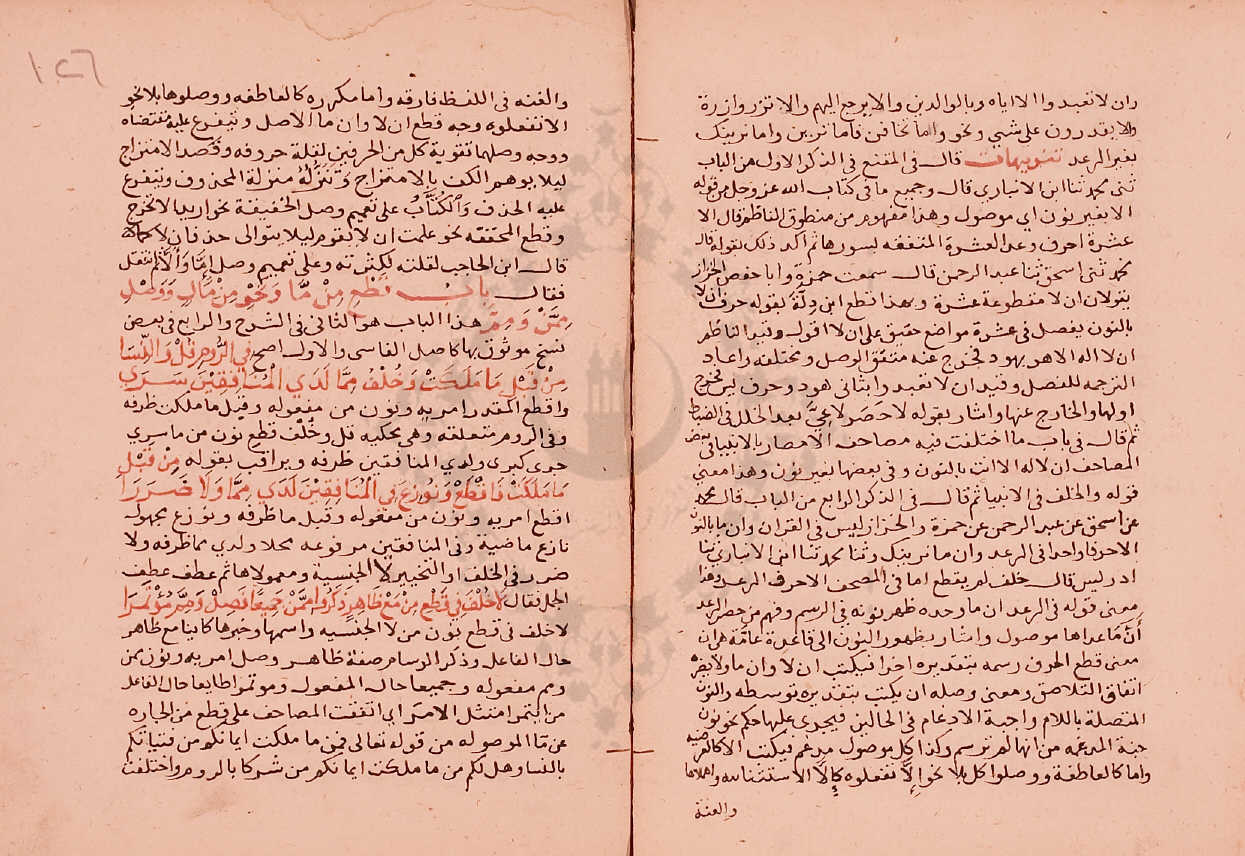 ان لا تعبدوا الا اياه وبالوالدين والا يرجع اليهم والا تزر وازرة
والا يقدرون على شي ونحو واما تخافن فاما ترين واما نرينك
بغير الرعد تنويهات قال في المقنع في الذكر الاول من الباب
ثنى محمد ثنا ابن الانباري قال وجميع ما في كتاب الله عز وجل من قوله
الا بغير نون اي موصول وهذا مفهوم من منطوق الناظم قال الا
عشرة احرف وعد العشرة المتفقه لسورها ثم أكد ذلك بقوله قال
محمد ثنى اسحق ثنا عبد الرحمن قال سمعت حمزة وابا حفص الخراز
يقولان ان لا مقطوعة عشرة وبهذا قطع ابن دلة بقوله حرف ان لا
بالنون يفصل في عشرة مواضع حقيق على ان لا اقول وقيد الناظم
ان لا اله الا هو بهود لخروج عنه متفق الوصل ومختلفه واعاد
الترجمه للفصل وقيد ان لا تعبد وا بثانى هود وحرف ليس لخروج
اولها والخارج عنها واشار بقوله لا حصر ولا عي بعد الخلل في الضابط
ثم قال في باب ما اختلفت فيه مصاحف الامصار بالانبيا في بعض
المصاحف ان لا اله الا انت بالنون وفي بعضها بغير نون وهذا معنى
قوله والخلف في الانبيا ثم قال في الذكر الرابع من الباب قال محمد
عن اسحق عن عبد الرحمن عن حمزة والخراز ليس في القران وان ما بالنون
الا حرفا واحدا في الرعد وان ما نرينك وثنا محمد ثنا ابن الانباري ثنا
ادريس قال خلف لم يقطع اما في المصحف الا حرف الرعد وهذا
معنى قوله في الرعد ان ما وحده ظهر نونه في الرسم وفهم من حصر الرعد
أن ما عداها موصول واشار بظهور النون الى قاعدة عامة هي ان
معنى قطع الحرف رسمه بتقديره اخرا فيكتب ان لا وان ما ولا يضر
اتفاق التلاصق ومعنى وصله ان يكتب بتقديره توسطه والنون
المتصلة باللام واجبة الادغام في الحالين فيجرى عليها حكم نحو نون
جنة المدغمه من انها لم ترسم وكذا كل موصول مدغم فيكتب الا كالم
واما كالعاطفة ووصلوا كل بلا نحو الا تفعلوه كالا الاستثنائيه واهملاها
والغنة
والغنه في اللفظ فارقه واما مكررة كالعاطفه ووصلوها بلا نحو
الا تفعلوه وجه قطع ان لا وان ما الاصل ويتفرع عليه مقتضاه
ووجه وصلها تقوية كل من الحرفين لقلة حروفه وقصد الامتزاج
ليلا يوهم الكف بالامتزاج وتنزله منزلة المحذوف ويتفرع
عليه الحذف والكتاب على تعميم وصل الخفيفة نحو اريد الا تخرج
وقطع المخففه نحو علمت ان لا تقوم ليلا يتوالى حذفان لا كما
قال ابن الحاجب لقلته لكثرته وعلى تعميم وصل اما وألا ثم انتقل
فقال باب قطع من ما ونحو من مال ووصل
ممن ومم هذا الباب هو الثاني في الشرح والرابع في بعض
نسخ موثوق بها كاصل الفاسى والاول اصح في الروم قل والنسا
من قبل ما ملكت وخلف مما لدى المنافقين سرى
واقطع المقدر امريه ونون من مفعوله وقبل ما ملكت ظرفه
وفي الروم متعلقه وهي محكيه قل وخلف قطع نون من ما سرى
جرى كبرى ولدى المنافقين ظرفه ويراقب بقوله من قبل
ما ملكت فاقطع ونوزع في المنافقين لدى مما ولا ضررا
اقطع امريه ونون من مفعوله وقبل ما ظرفه ونوزع مجهول
نازع ماضية وفي المنافقين مرفوعه محلا ولدى مما ظرفه ولا
ضرر في الخلف او التخيير لا الجنسية ومعمولاها ثم عطف عطف
الجمل فقال لا خلف في قطع من مع ظاهر ذكروا ممن جميعا فصل ومم مؤتمرا
لا خلف في قطع نون من لا الجنسيه واسمها وخبرها كائنا مع ظاهر
حال الفاعل وذكر الرسام صفة ظاهر وصل امريه ونون ممن
ومم مفعوله وجميعا حال المفعول وموتمرا طايعا حال الفاعل
من ايتمر امتثل الامر اى اتفقت المصاحف على قطع من الجاره
عن ما الموصوله من قوله تعالى فمن ما ملكت ايمانكم من فتياتكم
بالنسا وهل لكم من ما ملكت ايمانكم من شركا بالروم واختلفت